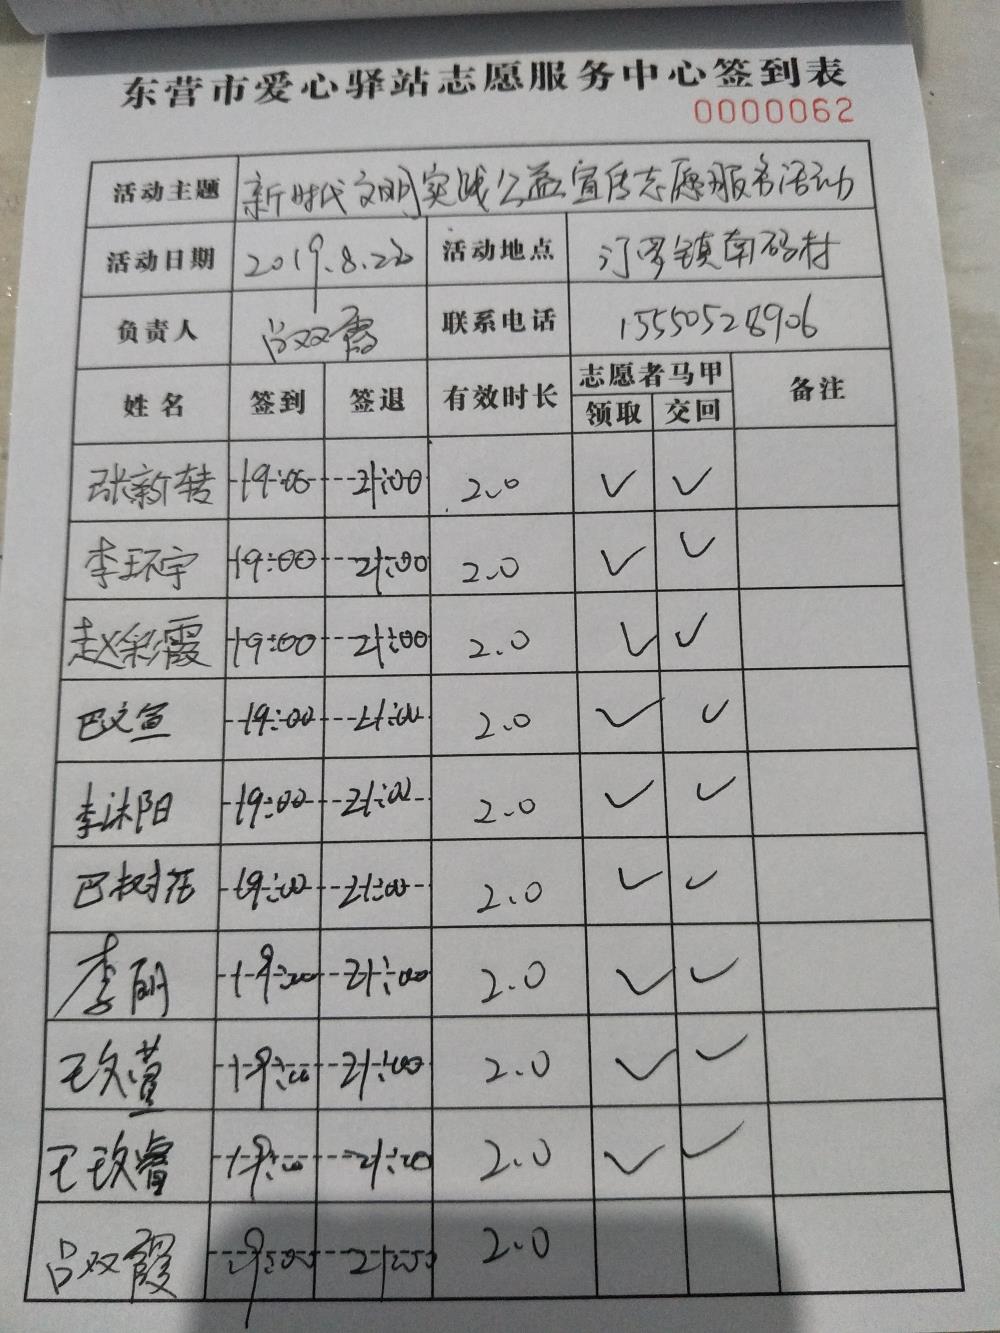 东营市爱心驿站志愿服务中心签到表
0000062
活动主题 新时代文明实践公益宣传志愿服务活动
活动日期 2019.8.22 活动地点 汀罗镇南码村
负责人 吕双霞 联系电话 15550528906
姓名 签到 签退 有效时长 志愿者马甲 备注
领取 交回
张新转 19:00 21:00 2.0 ✓ ✓
李环宇 19:00 21:00 2.0 ✓ ✓
赵彩霞 19:00 21:00 2.0 ✓ ✓
巴文宣 19:00 21:00 2.0 ✓ ✓
李沐阳 19:00 21:00 2.0 ✓ ✓
巴树 19:00 21:00 2.0 ✓ ✓
李明 19:00 21:00 2.0 ✓ ✓
王玫萱 19:00 21:00 2.0 ✓ ✓
王玫睿 19:00 21:00 2.0 ✓ ✓
吕双霞 19:00 21:00 2.0